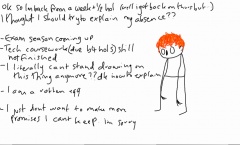 ok so I'm back from a week+½ hol (will right back on this but..)
I thought I should try to explain my absence??
- Exam season coming up
- Tech coursework (due b4 hols) still
not finished
- I literally cant stand drawing on
this thing anymore?? idk how to explain
- I am a rotten egg
- I just dont want to make more
promises I cant keep im sorry